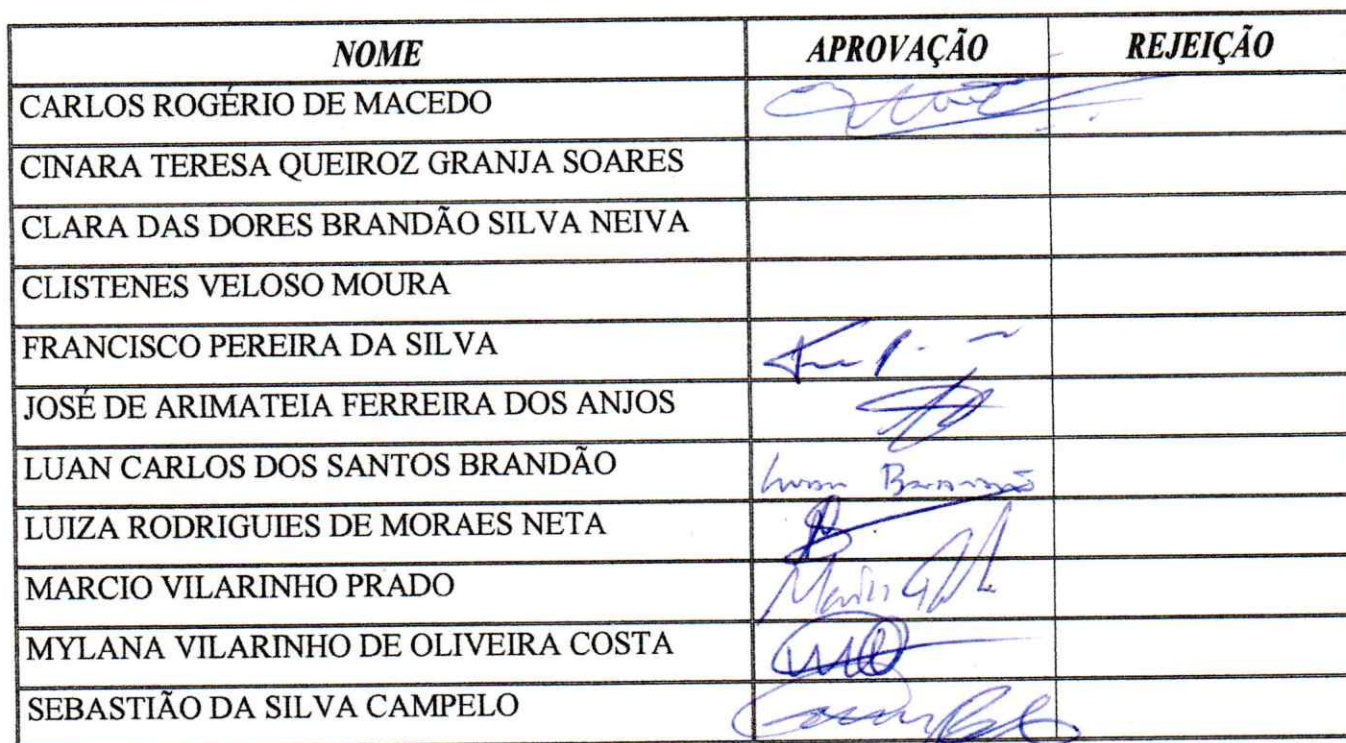 NOME APROVAÇÃO REJEIÇÃO
CARLOS ROGÉRIO DE MACEDO
CINARA TERESA QUEIROZ GRANJA SOARES
CLARA DAS DORES BRANDÃO SILVA NEIVA
CLISTENES VELOSO MOURA
FRANCISCO PEREIRA DA SILVA
JOSÉ DE ARIMATEIA FERREIRA DOS ANJOS
LUAN CARLOS DOS SANTOS BRANDÃO Luan Brandão
LUIZA RODRIGUIES DE MORAES NETA
MARCIO VILARINHO PRADO
MYLANA VILARINHO DE OLIVEIRA COSTA
SEBASTIÃO DA SILVA CAMPELO